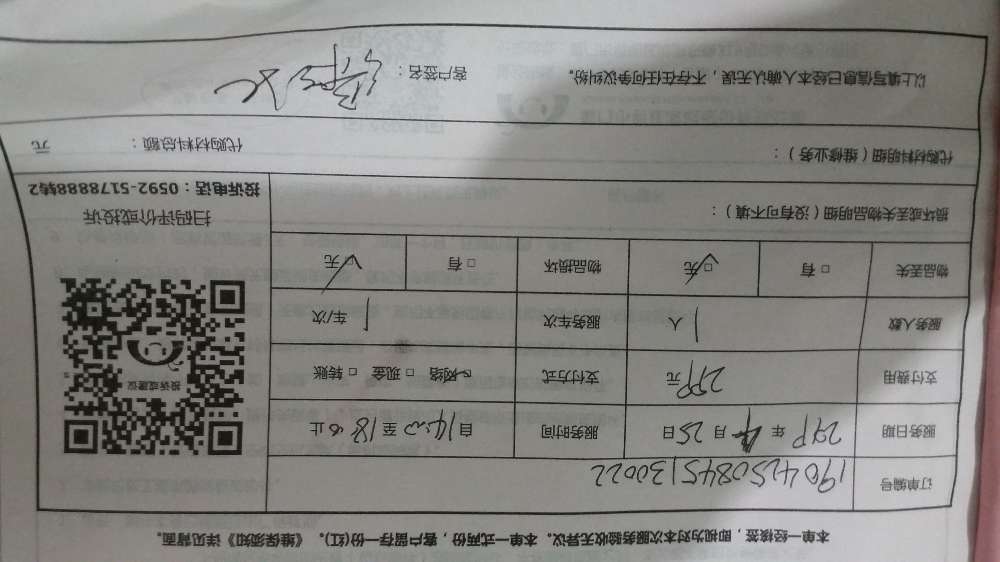 本单一经核签，即视为对本次服务验收无异议。本单一式两份，客户留存一份(红)。《维保须知》详见背面。
订单编号 1904250845130022
服务日期 年 4月25日 服务时间 自14:00至18:00止
支付费用 299元 支付方式 ☑网络 □现金 □转账
服务人数 1人 服务车次 1车/次
物品丢失 □有 ☑无 物品损坏 □有 ☑无
损坏或丢失物品明细（没有可不填）：
投诉或建议
扫码评价或投诉
投诉电话：0592-5178888转2
代购材料明细（维修业务）： 代购材料总额： 元
以上填写信息已经本人确认无误，不存在任何争议纠纷。 客户签名：